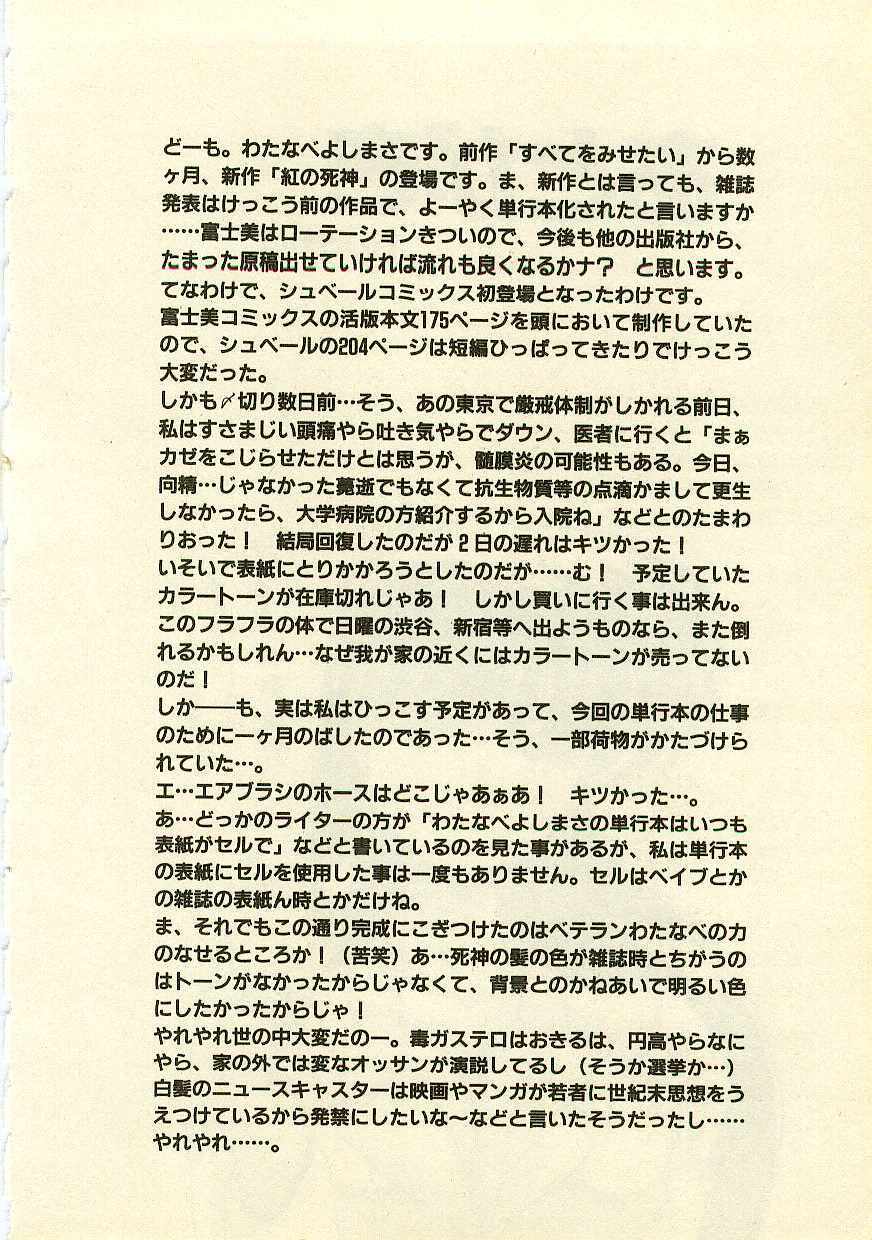 どーも。わたなべよしまさです。前作「すべてをみせたい」から数
ヶ月、新作「紅の死神」の登場です。ま、新作とは言っても、雑誌
発表はけっこう前の作品で、よーやく単行本化されたと言いますか
……富士美はローテーションきついので、今後も他の出版社から、
たまった原稿出せていければ流れも良くなるかナ?　と思います。
てなわけで、シュベールコミックス初登場となったわけです。
富士美コミックスの活版本文175ページを頭において制作していた
ので、シュベールの204ページは短編ひっぱってきたりでけっこう
大変だった。
しかも〆切り数日前…そう、あの東京で厳戒体制がしかれる前日、
私はすさまじい頭痛やら吐き気やらでダウン、医者に行くと「まぁ
カゼをこじらせただけとは思うが、髄膜炎の可能性もある。今日、
向精…じゃなかった薨逝でもなくて抗生物質等の点滴かまして更生
しなかったら、大学病院の方紹介するから入院ね」などとのたまわ
りおった!　結局回復したのだが２日の遅れはキツかった!
いそいで表紙にとりかかろうとしたのだが……む!　予定していた
カラートーンが在庫切れじゃあ!　しかし買いに行く事は出来ん。
このフラフラの体で日曜の渋谷、新宿等へ出ようものなら、また倒
れるかもしれん…なぜ我が家の近くにはカラートーンが売ってない
のだ!
しか――も、実は私はひっこす予定があって、今回の単行本の仕事
のために一ヶ月のばしたのであった…そう、一部荷物がかたづけら
れていた…。
エ…エアブラシのホースはどこじゃあぁあ!　キツかった…。
あ…どっかのライターの方が「わたなべよしまさの単行本はいつも
表紙がセルで」などと書いているのを見た事があるが、私は単行本
の表紙にセルを使用した事は一度もありません。セルはベイブとか
の雑誌の表紙ん時とかだけね。
ま、それでもこの通り完成にこぎつけたのはベテランわたなべの力
のなせるところか!（苦笑）あ…死神の髪の色が雑誌時とちがうの
はトーンがなかったからじゃなくて、背景とのかねあいで明るい色
にしたかったからじゃ!
やれやれ世の中大変だのー。毒ガステロはおきるは、円高やらなに
やら、家の外では変なオッサンが演説してるし（そうか選挙か…）
白髪のニュースキャスターは映画やマンガが若者に世紀末思想をう
えつけているから発禁にしたいな～などと言いたそうだったし……
やれやれ……。